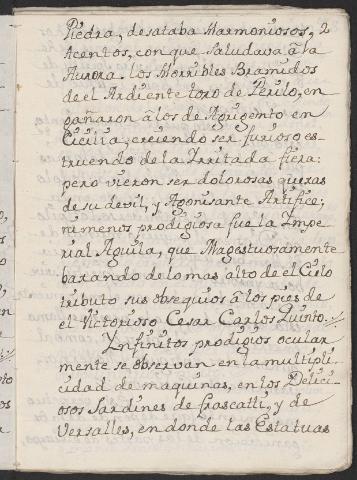 Piedra, desataba Harmoniosos, 2
Acentos, con que Saludava â la
Aurora. los Horribles Bramidos
de el Ardiente toro de Perilo, en
gañaron â los de Agrigento en
Cicilia; creiendo ser furioso es
truendo de la Irritada fiera:
pero vieron ser dolorosas quexas
de su devil, y Agonisante Artifice;
ni menos prodigiosa fue la Impe
rial Aguila, que Magestuosamente
baxando de lo mas alto de el Cielo
tributo sus obsequios â los pies de
el Victorioso Cesar Carlos Quinto.
Ynfinitos prodigios ocular
mente se observan en la multipli
cidad de maquinas, en los Delici
osos Jardines de Frascatti, y de
Versalles, en donde las Estatuas